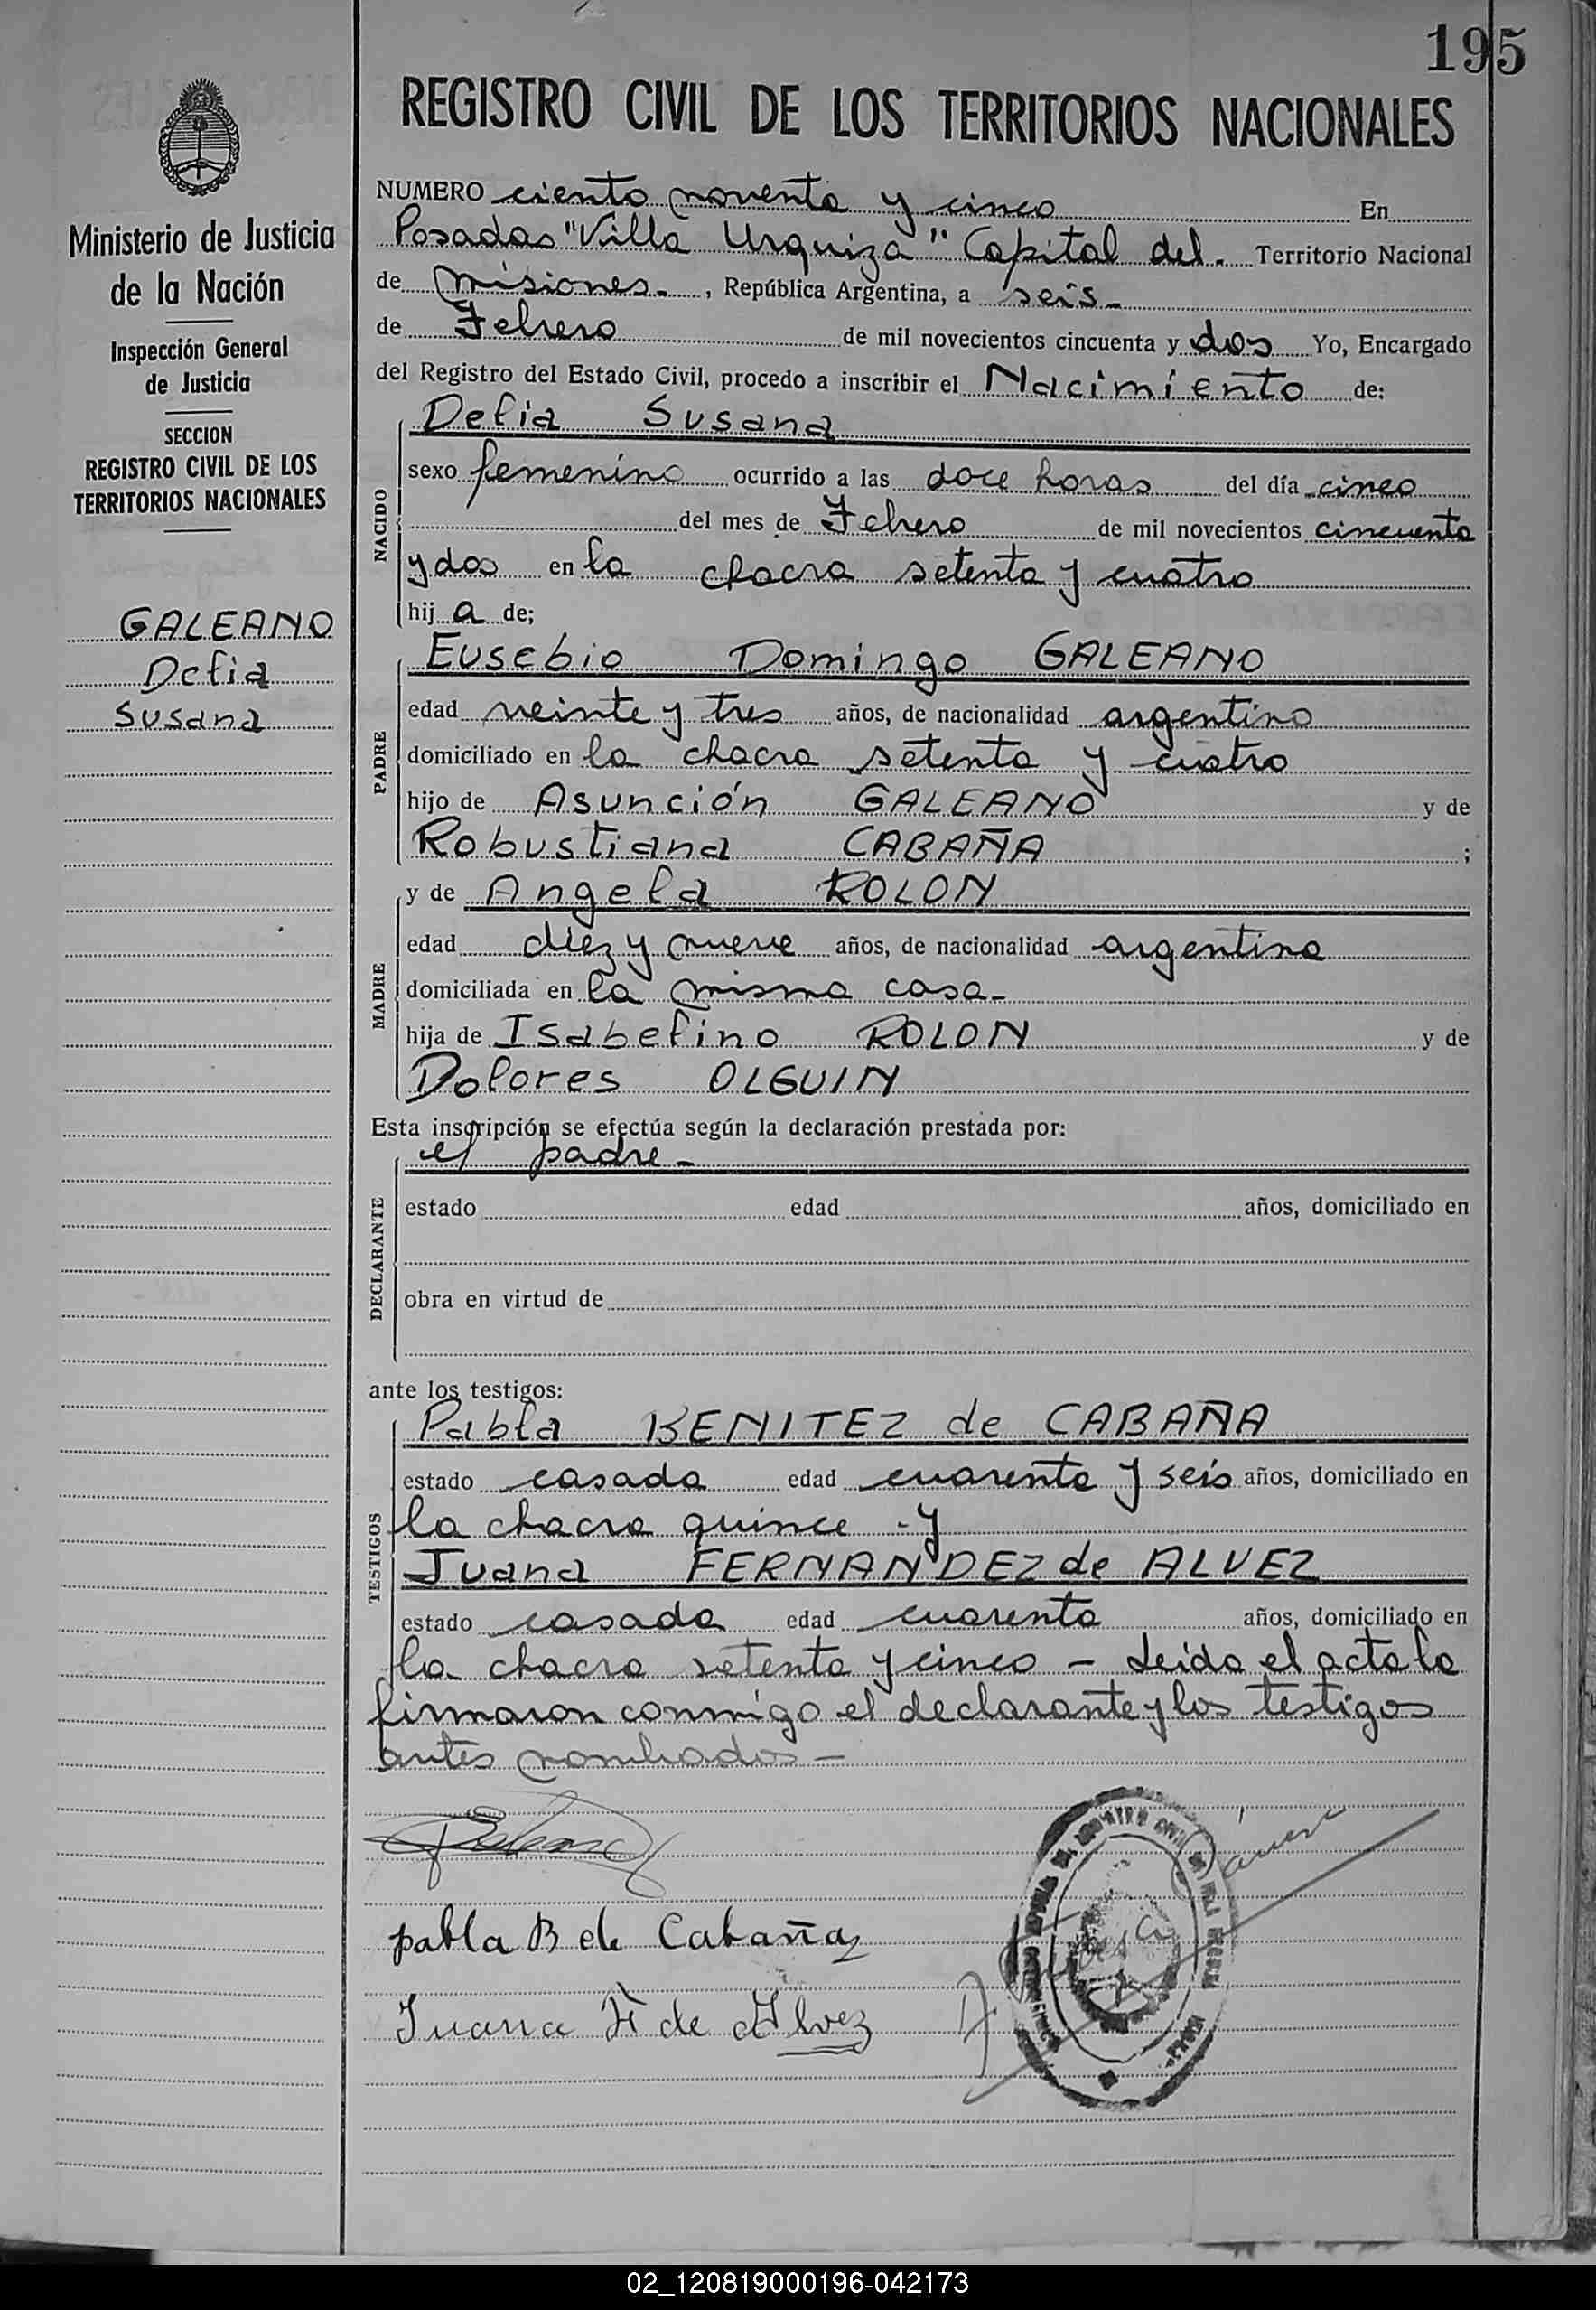 195
REGISTRO CIVIL DE LOS TERRITORIOS NACIONALES
Ministerio de Justicia
de la Nación
Inspección General
de Justicia
SECCION
REGISTRO CIVIL DE LOS
TERRITORIOS NACIONALES
GALEANO
Delia
Susana
NUMERO ciento noventa y cinco En
Posadas "Villa Urquiza" Capital del. Territorio Nacional
de Misiones-, República Argentina, a seis-
de Febrero de mil novecientos cincuenta y dos Yo, Encargado
del Registro del Estado Civil, procedo a inscribir el Nacimiento de:
NACIDO
Delia Susana
sexo femenino ocurrido a las doce horas del día cinco
del mes de Febrero de mil novecientos cincuenta
y dos en la chacra setenta y cuatro
hija de;
PADRE
Eusebio Domingo GALEANO
edad veinte y tres años, de nacionalidad argentino
domiciliado en la chacra setenta y cuatro
hijo de Asunción GALEANO y de
Robustiana CABAÑA ;
MADRE
y de Angela ROLON
edad diez y nueve años, de nacionalidad argentina
domiciliada en la misma casa-
hija de Isabelino ROLON y de
Dolores OLGUIN
Esta inscripción se efectúa según la declaración prestada por:
DECLARANTE
el padre-
estado edad años, domiciliado en
obra en virtud de
ante los testigos:
TESTIGOS
Pabla BENITEZ de CABAÑA
estado casada edad cuarenta y seis años, domiciliado en
la chacra quince -y
Juana FERNANDEZ de ALVEZ
estado casada edad cuarenta años, domiciliado en
la chacra setenta y cinco - Leida el acta la
firmaron conmigo el declarante y los testigos
antes nombrados-
pabla B de Cabaña
Juana F de Alvez
02_120819000196-042173